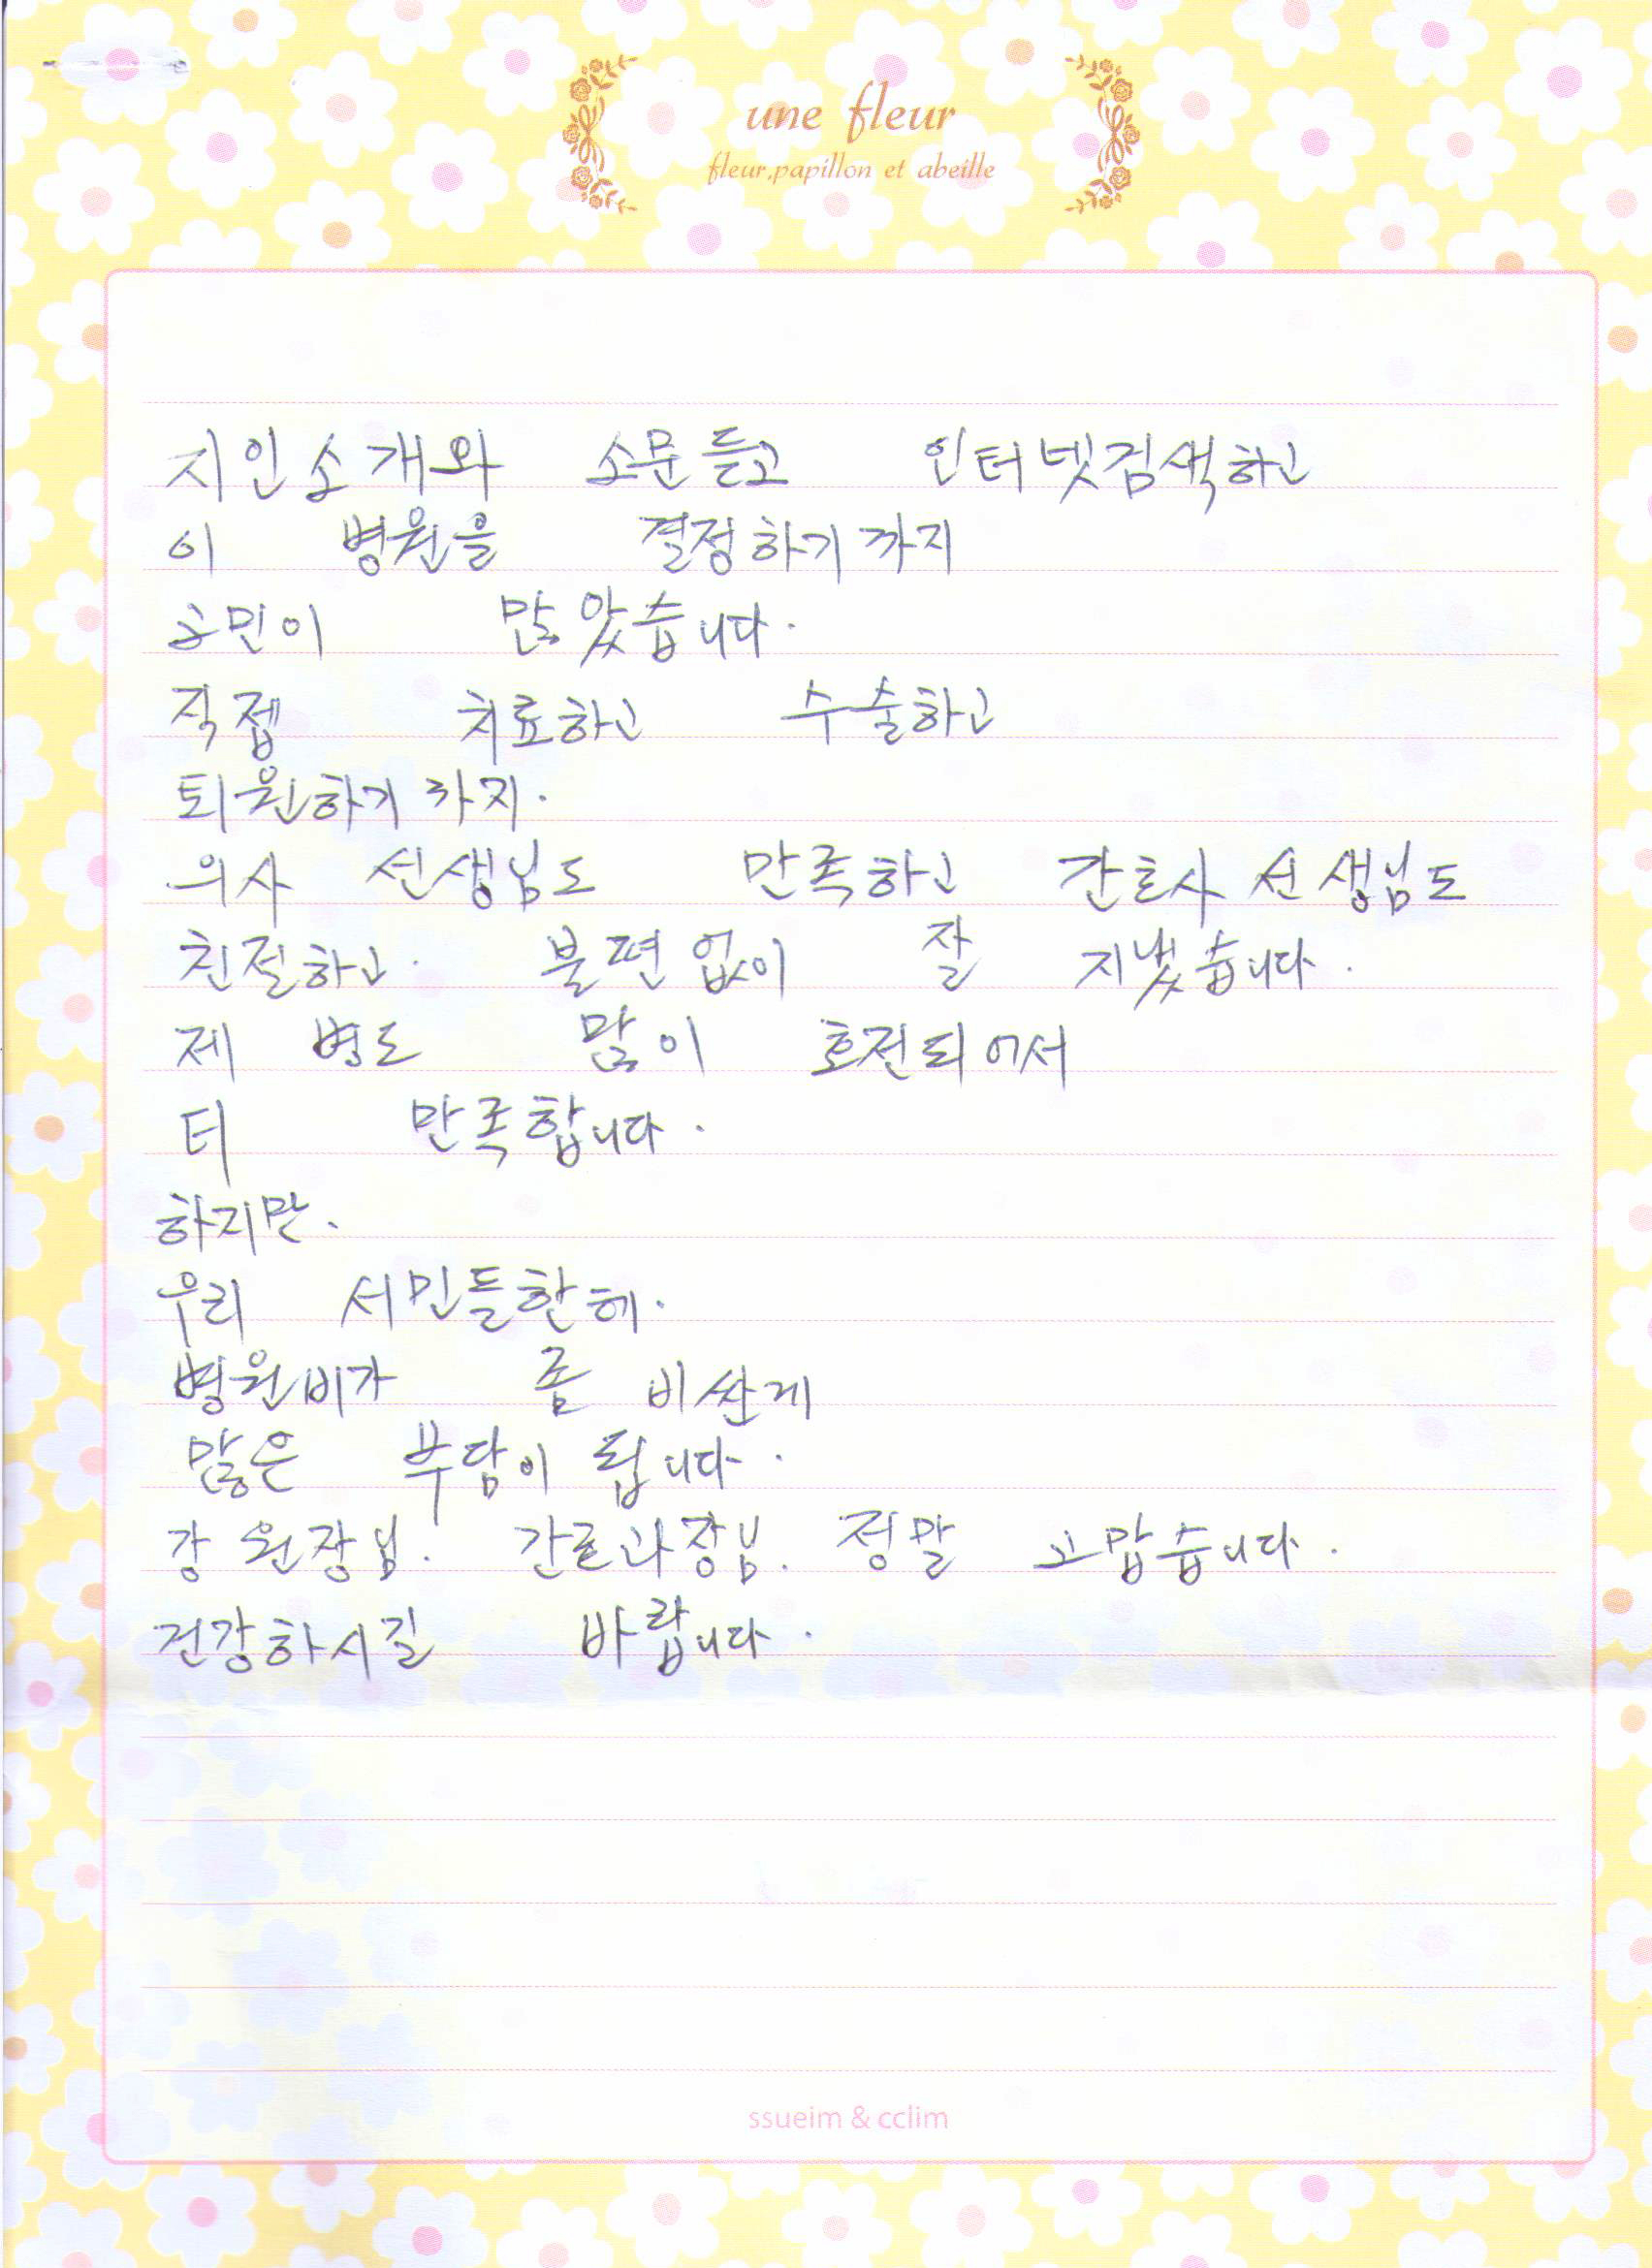 une fleur
fleur,papillon et abeille
지인소개와 소문듣고 인터넷검색하고
이 병원을 결정하기까지
고민이 많았습니다.
직접 치료하고 수술하고
퇴원하기 까지.
의사 선생님도 만족하고 간호사 선생님도
친절하고. 불편없이 잘 지냈습니다.
제 병도 많이 호전되어서
터 만족합니다.
하지만.
우리 서민들한헤.
병원비가 좀 비싼게
많은 부담이 됩니다.
강 원장님. 간호과장님. 정말 고맙습니다.
건강하시길 바랍니다.
ssueim & cclim